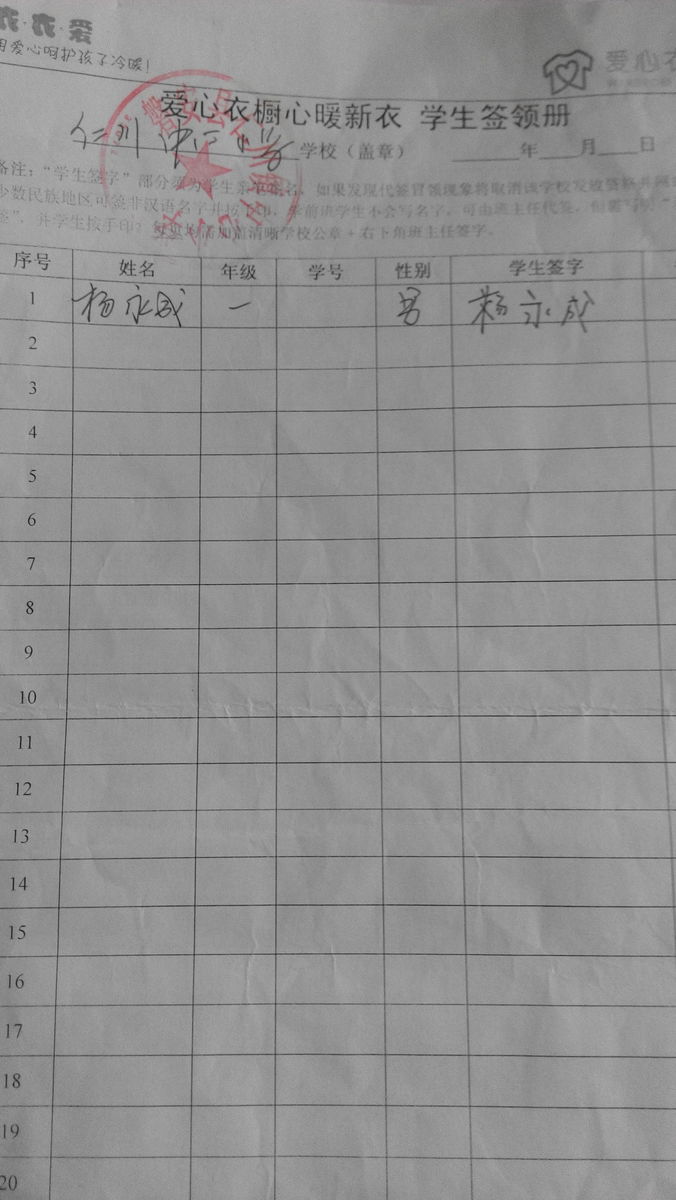 衣·衣·爱
用爱心呵护孩子冷暖！
爱心衣
爱心衣橱心暖新衣 学生签领册
仁川 小学 学校（盖章） 年 月 日
备注：“学生签字”部分须为学生亲笔签名，如果发现代签冒领现象将取消该学校发放资格并
少数民族地区可签非汉语名字并按手印，学前班学生不会写名字，可由班主任代签，但需写明“
签”，并学生按手印；每页均需加盖清晰学校公章+右下角班主任签字。
序号 姓名 年级 学号 性别 学生签字
1 杨永成 一 男 杨永成
2
3
4
5
6
7
8
9
10
11
12
13
14
15
16
17
18
19
20